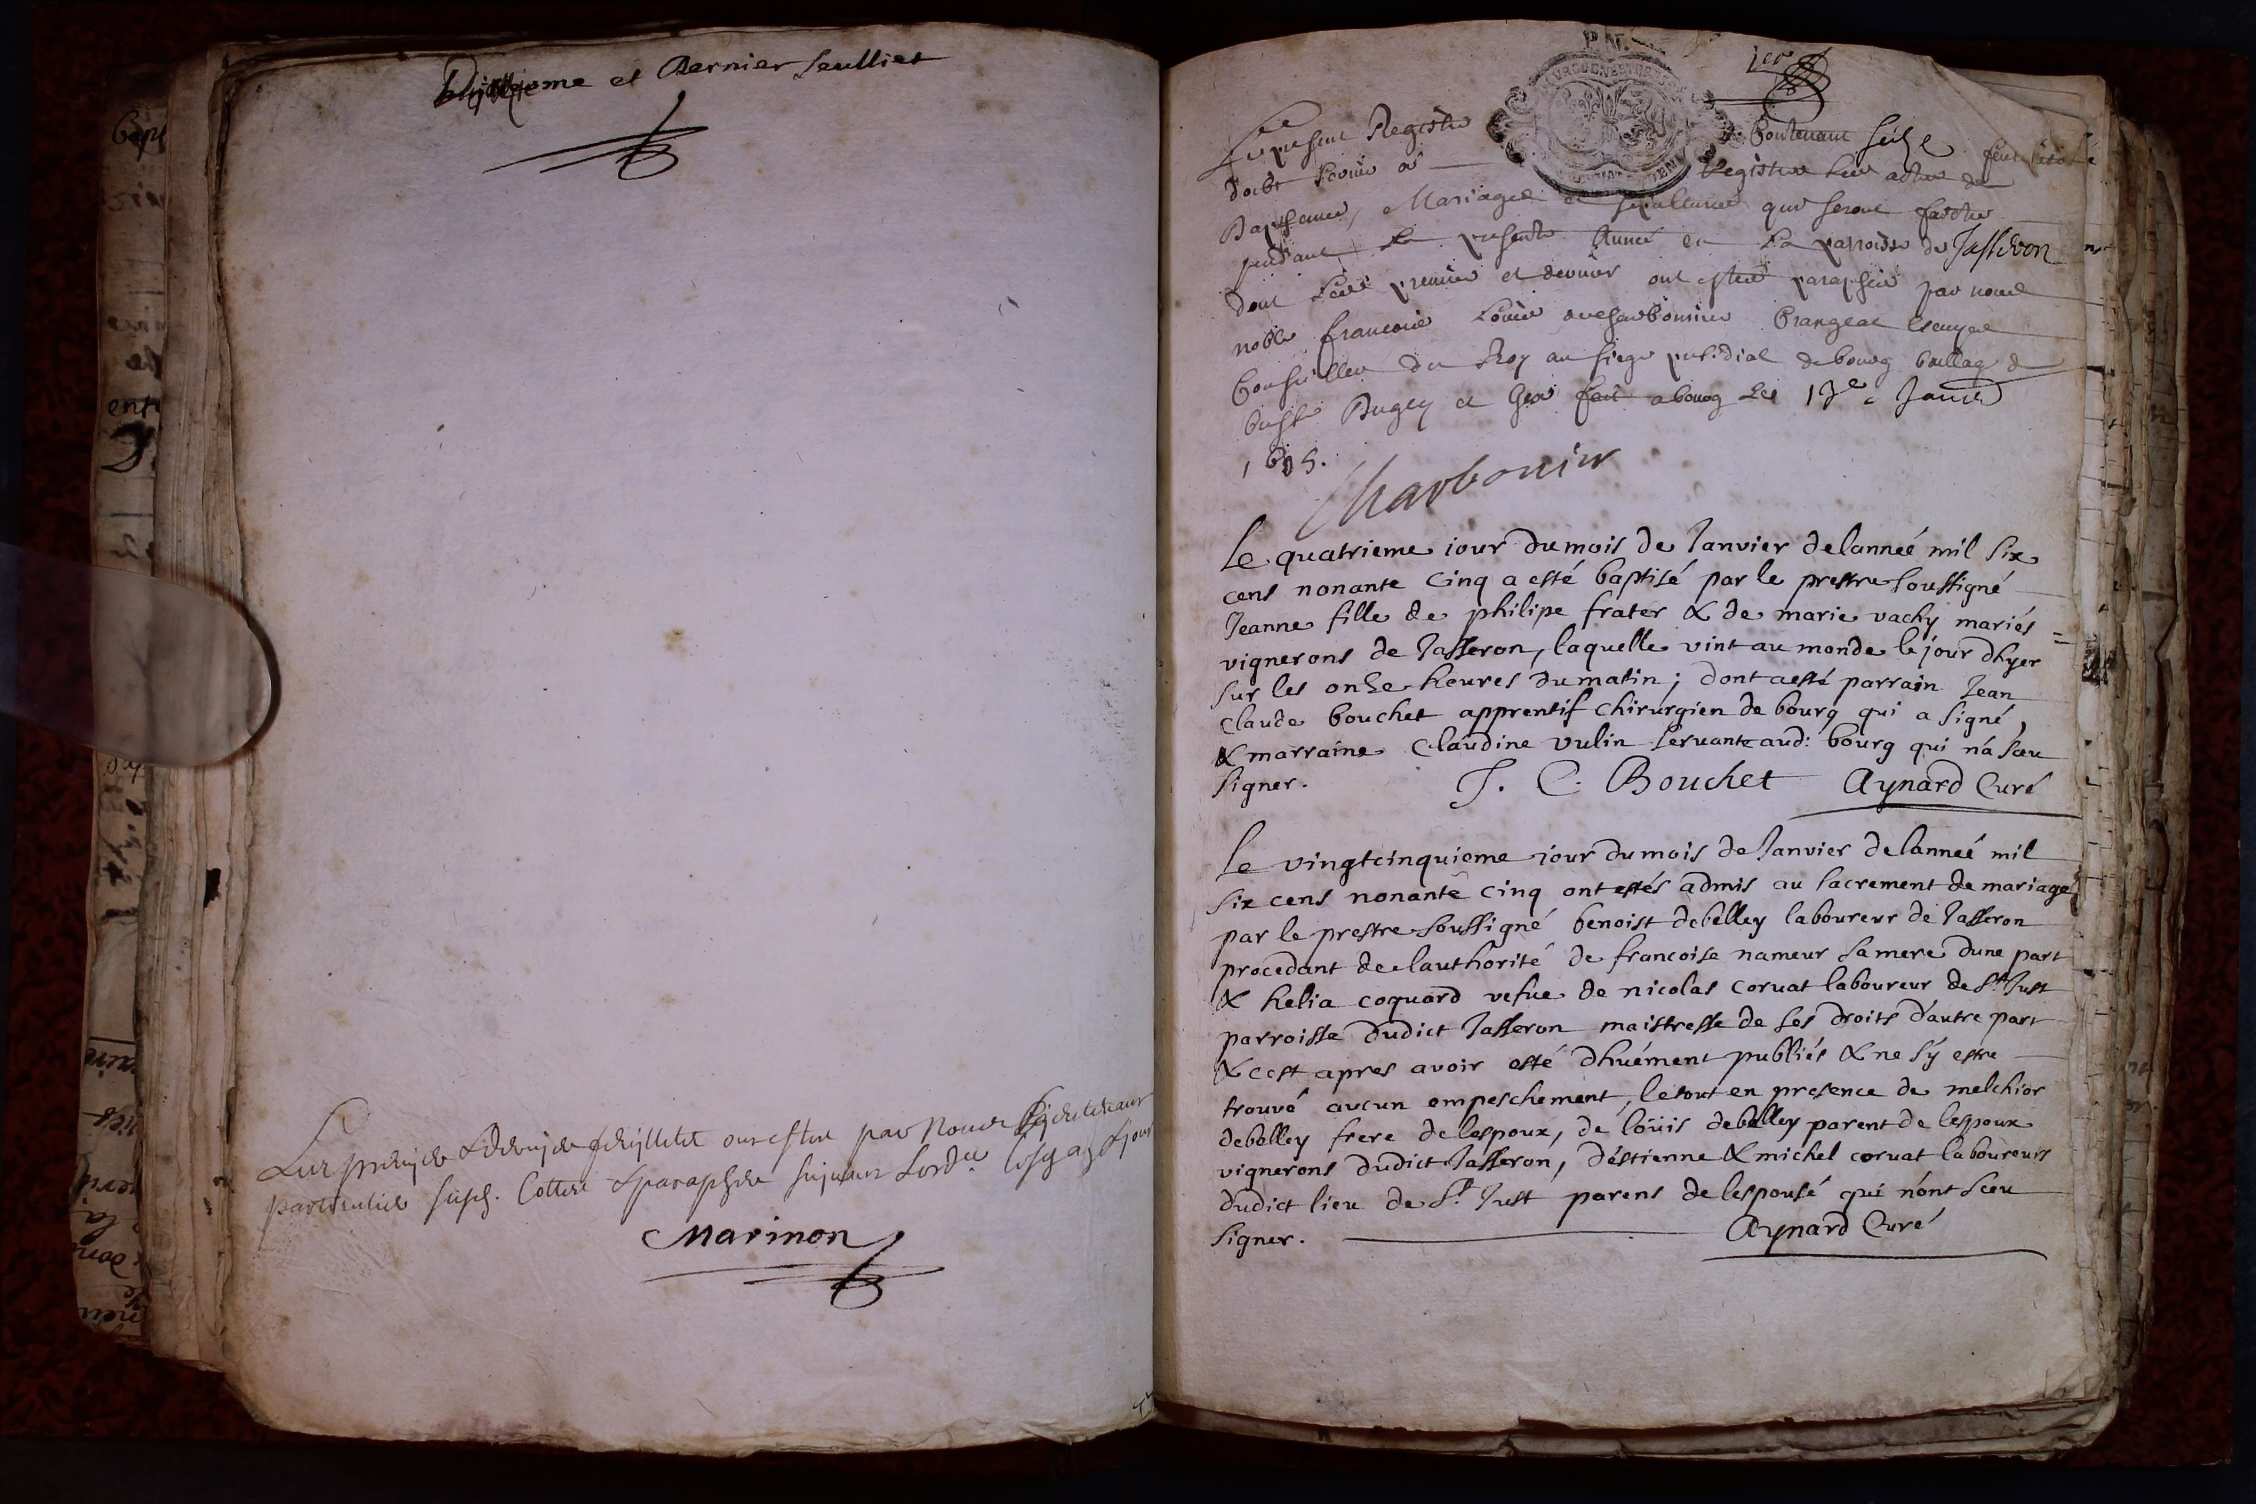 et Dernier feulliet
par nous
Marinon
P. N.
1er
Le present Registre Contenant seize
doibt servir a Registrer les actes de
Baptesmes, Mariages et sepultures qui seront faictes
pendant la presente Année en la parroisse de Jasseron
dont les premier et dernier ont estes paraphés par nous
noble francois Louis decharbonnier Crangeac escuyer
Conseiller du Roy au siege presidial de bourg balliage de
bresse Bugey et Gex fait a bourg les 17e Janvr
1695.
Charbonier
Le quatrieme iour du mois de Janvier de lanneé mil six
cens nonante cinq a esté baptisé par le prestre soussigné
Jeanne fille de philipe frater & de marie vachy mariés
vignerons de Jasseron, laquelle vint au monde le jour dhyer
sur les onze heures du matin ; dont a esté parrain Jean
claude bouchet apprentif chirurgien de bourg qui a signé,
& marraine claudine vulin servante aud: bourg qui n'a sceu
signer. J. C. Bouchet Aynard Curé
Le vingtcinquieme iour du mois de Janvier de lanneé mil
six cens nonante cinq ont estés admis au sacrement de mariage
par le prestre soussigné benoist debelley laboureur de Jasseron
procedant de lauthorité de francoise nameur sa mere dune part
& helia coquard vefue de nicolas coruat laboureur de St Just
parroisse dudict Jasseron maistresse de ses droits d'autre part
& cest apres avoir esté dhuément publiés & ne s'y estre
trouvé aucun empeschement, le tout en presence de melchior
debelley frere de lespoux, de loüis debelley parent de lespoux
vignerons dudict Jasseron, d'éstienne & michel coruat laboureurs
dudict lieu de St Just parens de lespousé qui n'ont sceu
signer. Aynard Curé